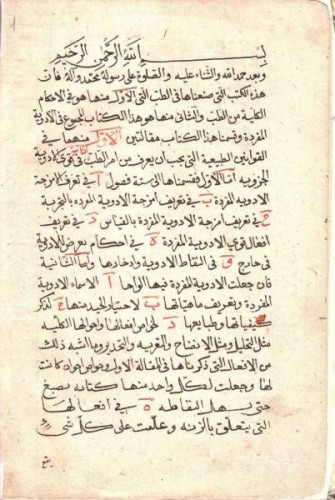 بسم الله الرحمن الرحيم
وبعد حمد الله والثناء عليه والصلوة على رسوله محمد وآله فان
هذه الكتب التى صنعناها فى الطب التى الاول منها هو فى الاحكام
الكلية من الطب والثانى منها هو هذا الكتاب المجموع فى الادوية
المفردة وقسمنا هذا الكتاب مقالتين الاول منهما فى
القوانين الطبيعية التى يجب ان يعرف من امر الطب فى قوى الادوية
الجزوية اما الاول فقسمناها الى ستة فصول آ فى تعرف امزجة
الادوية المفردة ب فى تعريف امزجة الادوية المفردة بالتجربة
ج فى تعريف امزجة الادوية المفردة بالقياس د فى تعريف
افعال قوى الادوية المفردة ه فى احكام يعرض للادوية
فى خارج و فى التقاط الادوية وادخارها واما الثانية
فان جعلت الادوية المفردة فيها الواحا آ الاسماء الادوية
المفردة وتعريف ماهياتها ب لاختيار الجيد منها ج لذكر
كيفياتها وطبايعها د لخواص افعالها واحوالها الكلية
مثل التحليل ومثل الانضاج والتغرية والتخدير وما اشبه ذلك
من الافعال التى ذكرناها فى المقالة الاولى وخواص ان كانت
لها وجعلت لكل واحد منها كتابه بصبغ
حتى يسهل التقاطه ه فى افعالها
التى يتعلق بالزينة وعلمت على كل شى